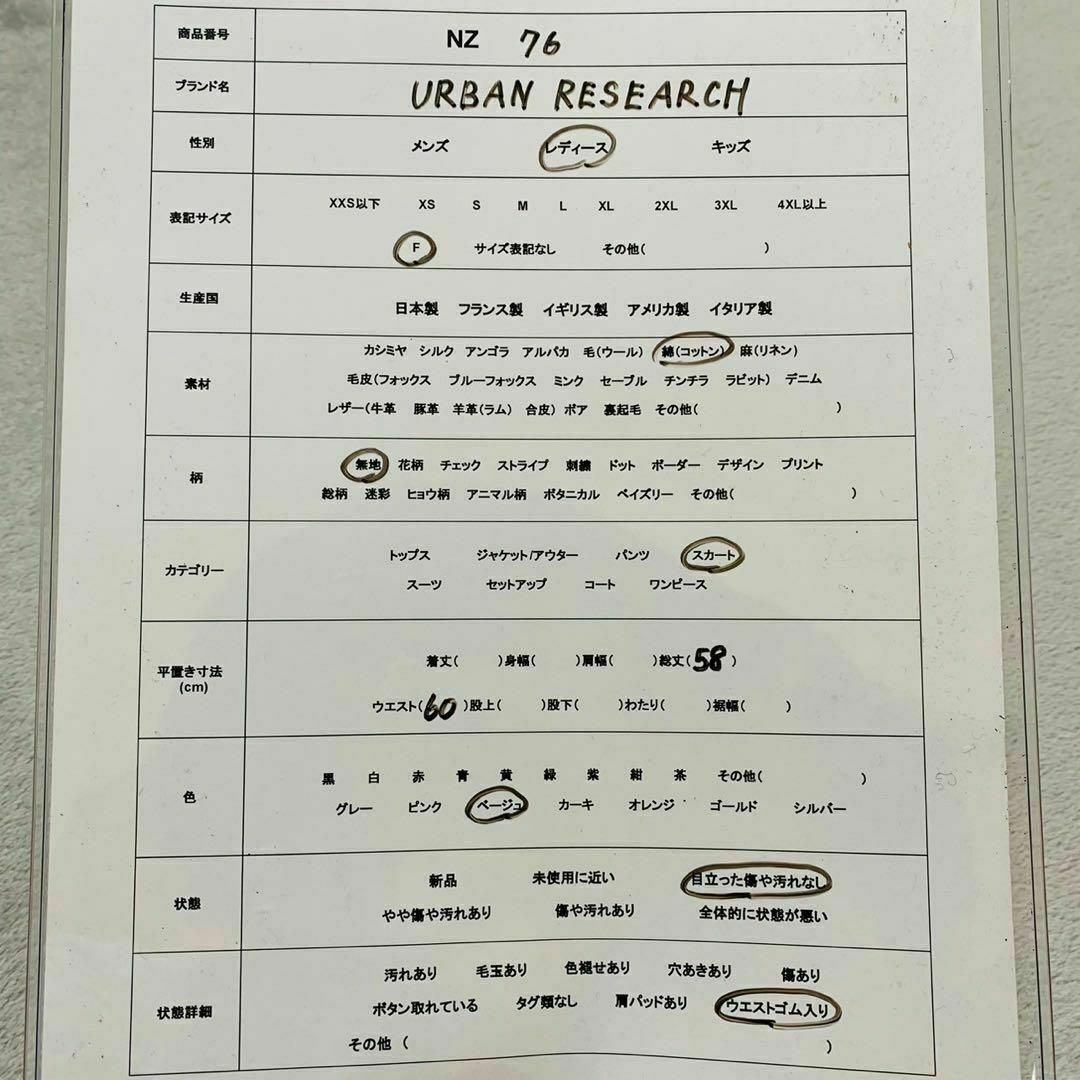 商品番号 NZ 76
ブランド名 URBAN RESEARCH
性別 メンズ レディース キッズ
XXS以下 XS S M L XL 2XL 3XL 4XL以上
表記サイズ
F サイズ表記なし その他( )
生産国
日本製 フランス製 イギリス製 アメリカ製 イタリア製
カシミヤ シルク アンゴラ アルパカ 毛(ウール) 綿(コットン) 麻(リネン)
素材 毛皮(フォックス ブルーフォックス ミンク セーブル チンチラ ラビット) デニム
レザー(牛革 豚革 羊革(ラム) 合皮) ボア 裏起毛 その他( )
無地 花柄 チェック ストライプ 刺繍 ドット ボーダー デザイン プリント
柄
総柄 迷彩 ヒョウ柄 アニマル柄 ボタニカル ペイズリー その他( )
トップス ジャケット/アウター パンツ スカート
カテゴリー
スーツ セットアップ コート ワンピース
着丈( )身幅( )肩幅( )総丈(58)
平置き寸法
(cm)
ウエスト(60)股上( )股下( )わたり( )裾幅( )
黒 白 赤 青 黄 緑 紫 紺 茶 その他( )
色
グレー ピンク ベージュ カーキ オレンジ ゴールド シルバー
新品 未使用に近い 目立った傷や汚れなし
状態
やや傷や汚れあり 傷や汚れあり 全体的に状態が悪い
汚れあり 毛玉あり 色褪せあり 穴あきあり 傷あり
状態詳細 ボタン取れている タグ類なし 肩パッドあり ウエストゴム入り
その他 ( )